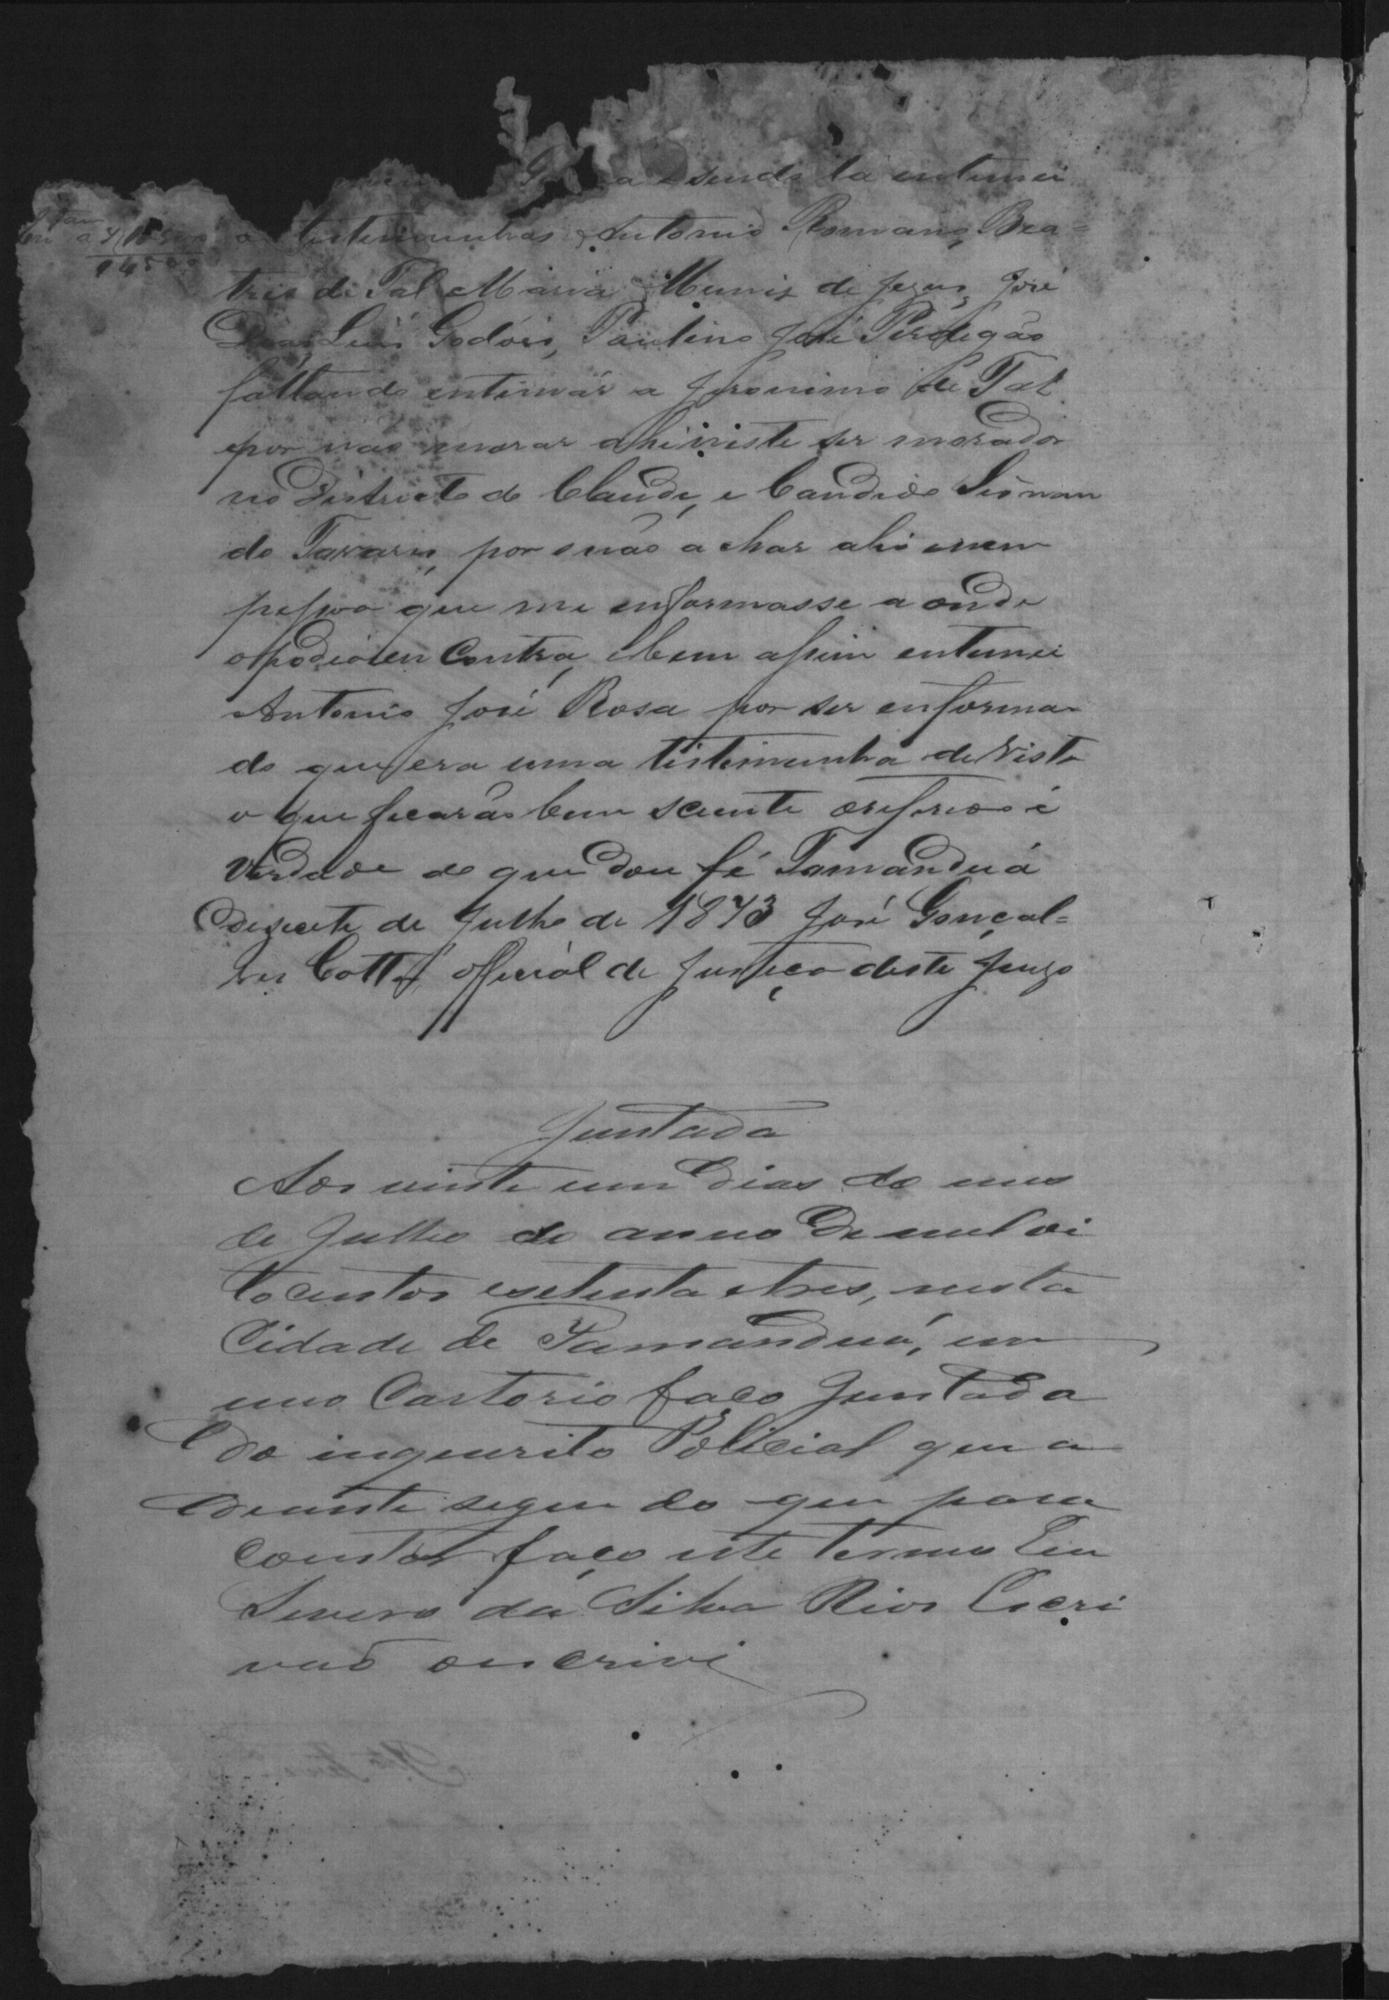 a e sendo la entimei
as testemunhas Antonio Romano, Bea=
tris de Tal Maria Muniz de Jezus, José
Luis Godois, Paulino José Perdigão
faltando entimár a Jeronimo de Tal
por não morar ahi i iste ser morador
no Districto do Claudio, e Candido
do Tavares, por e não achar ahi e nem
pessoa que me enformasse a onde
o podia en Contra, e bem assim entimei
Antonio José Rosa por ser enforma
do que era uma testemunha de Vista
o que ficarão bem sciente o referido é
Verdade do que Dou fé Tamanduá
Desecete de Julho de 1873 José Gonçal=
ves Cotta official de Justiça deste Juizo
Juntada
Aos vinte um dias do mes
de Julho do anno de mil oi
tocentos e setenta e tres, nesta
Cidade de Tamanduá, em
meo Cartorio faço Juntada
do inquerito Policial que a
deante segue do que para
constar faço este termo Eu
Severo da Silva Rios Escri
vão o escrivi